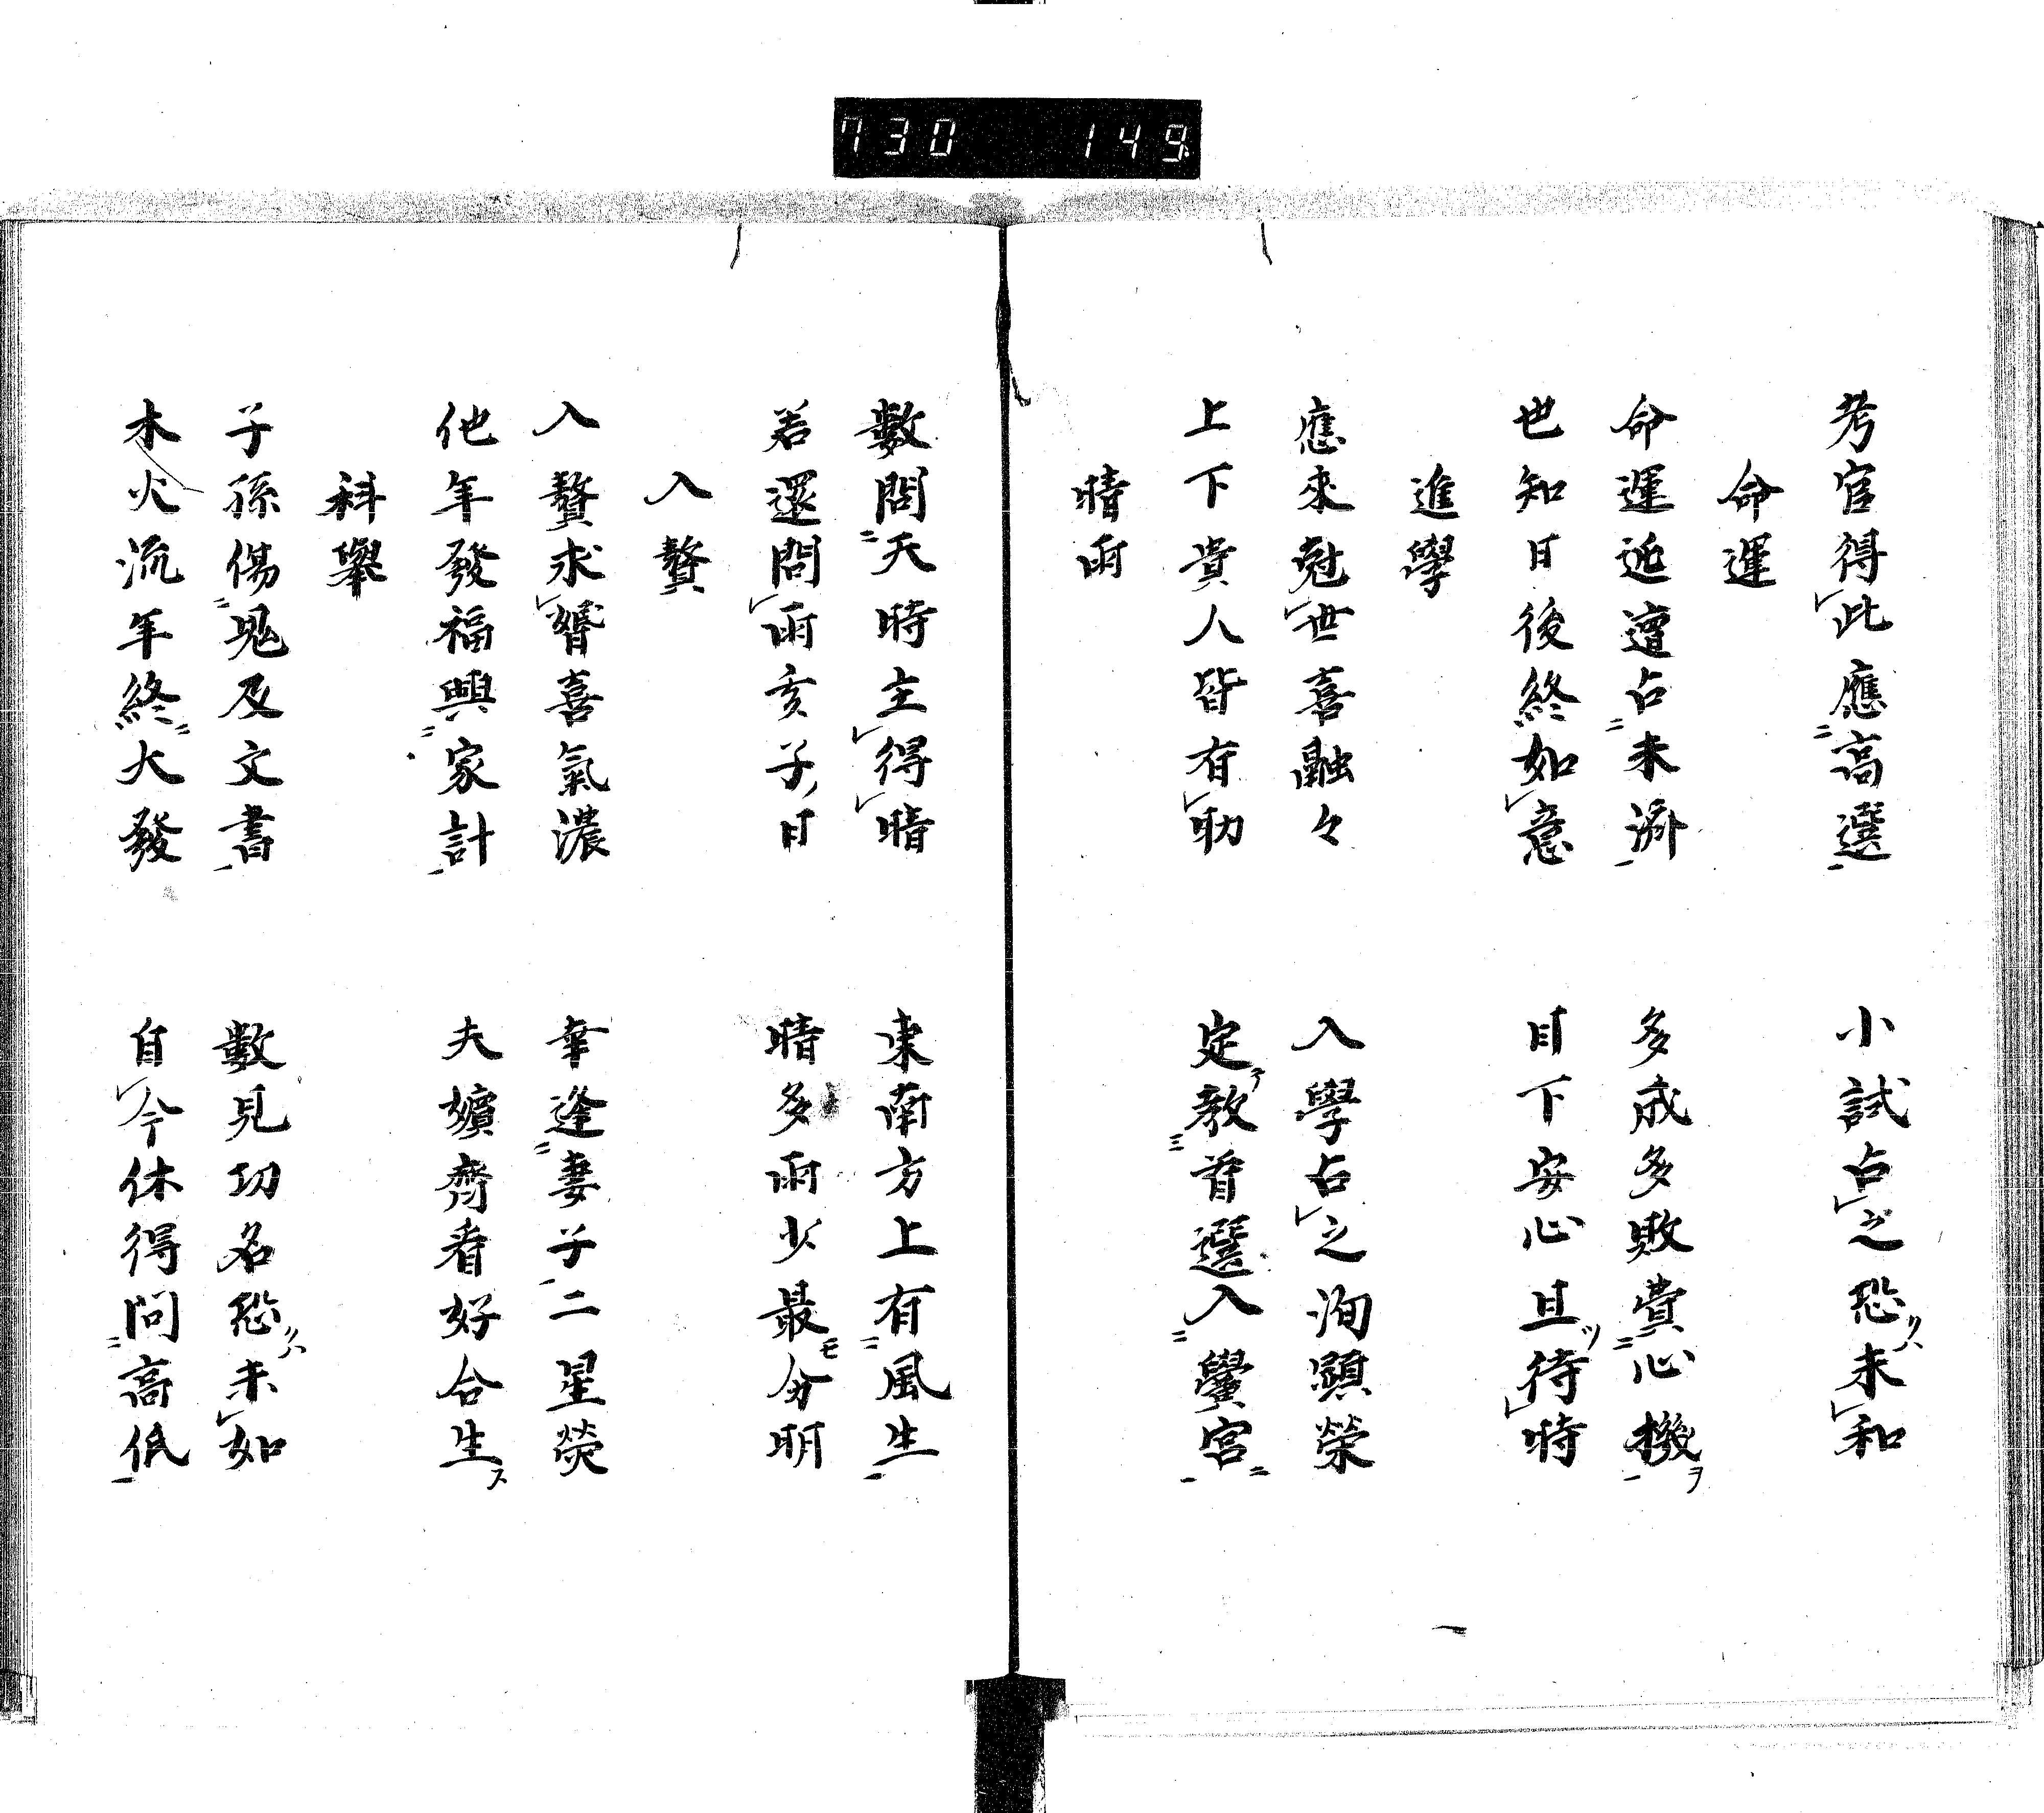 730 149
考官得此應高選 小試占之恐未和
命運
命運迍邅占未濟 多成多敗費心機
也知日後終如意 目下安心且待時
進學
應來尅世喜融々 入學占之洵顕榮
上下貴人皆有助 定教首選入黌宮
晴雨
數問天時主得晴 東南方上有風生
若還問雨亥子日 晴多雨少最分明
入贅
入贅求婚喜氣濃 幸逢妻子二星熒
他年發福興家計 夫嬪齊看好合生
科舉
子孫傷鬼及文書 數見功名恐未如
木火流年終大發 自今休得問高低